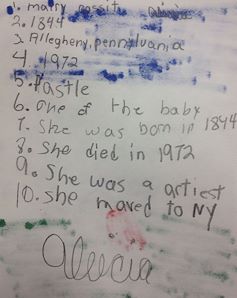 1. matry cassitt alucia
2. 1844
3. Allegheny, pennylvania
4. 1972
5. Pastle
6. one of the baby
7. She was born in 1844
8. She died in 1972
9. She was a artiest
10. she moved to NY
alucia